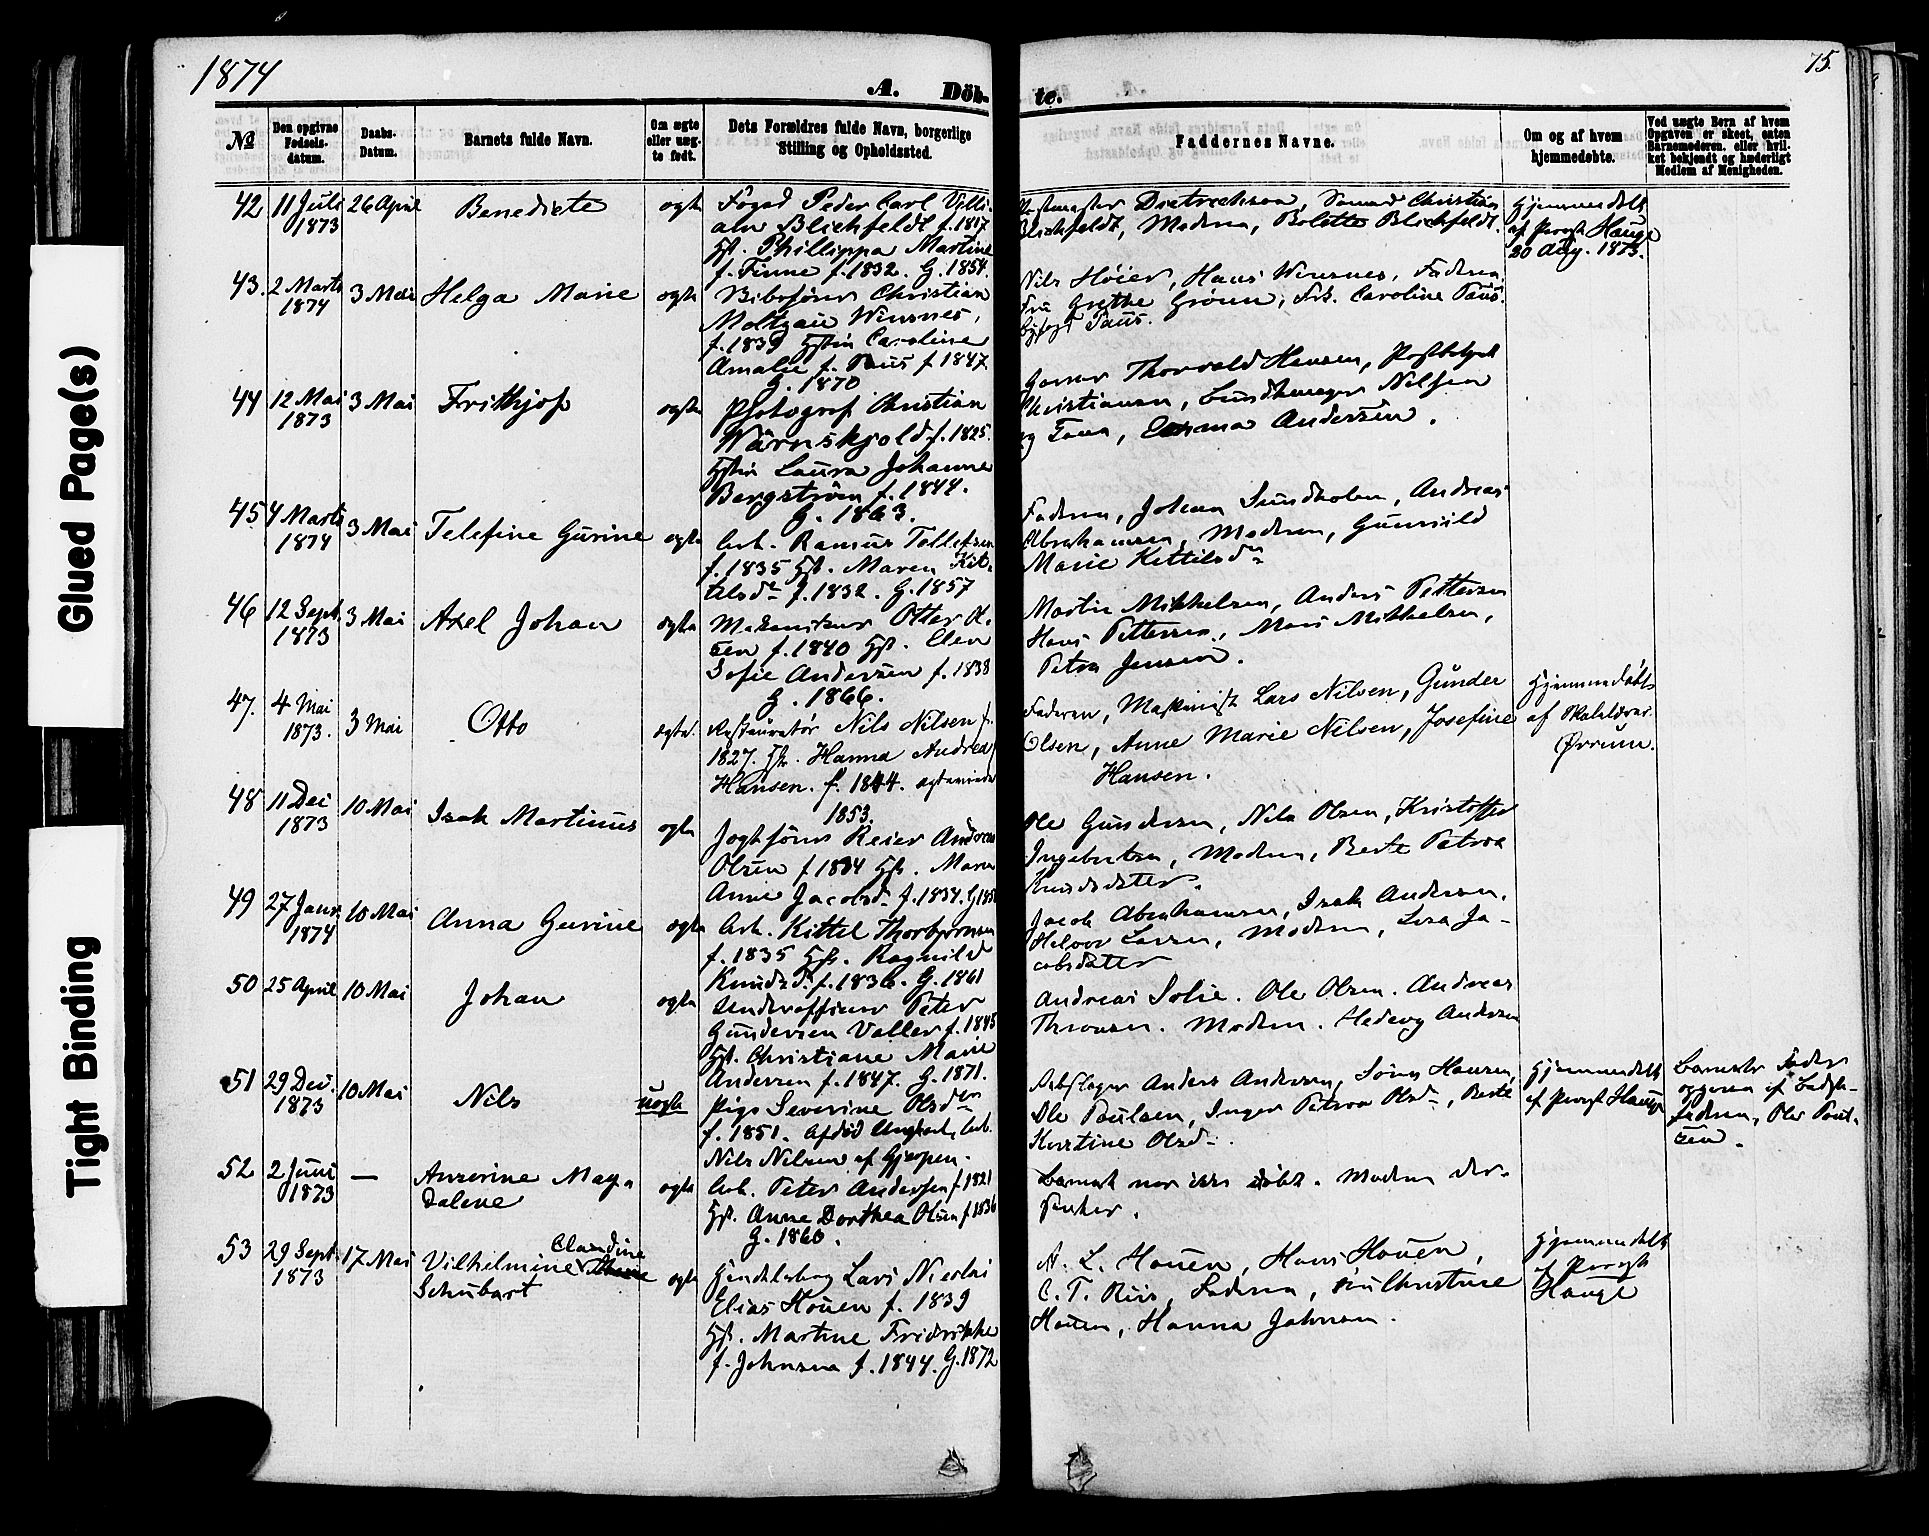 1874
A. Döb-
te.
75.
Glued Page(s)
Tight Binding
№
Den opgivne Fødsels-datum.
Daabs-Datum.
Barnets fulde Navn.
Om ægte eller uægte født.
Dets Forældres fulde Navn, borgerlige Stilling og Opholdssted.
Faddernes Navne.
Om og af hvem hjemmedøbte.
Ved uægte Børn af hvem Opgaven er skeet, enten Barnemoderen, eller hvilket bekjendt og hæderligt Medlem af Menigheden.
42 11 Juli 1873 26 April Benedicte ægte
Foged Peder Carl Villi-
am Blichfeldt f. 1817
Hst. Phillippa Martine
f. Finne f. 1832. G. 1854.
Christian
Blichfeldt, Moderen, Bolette Blichfeldt.
Hjemmedøbt
af Provst Hauge
20 Aug. 1873.
43. 2 Marts 1874 3 Mai Helga Marie ægte
Christian
Moltzau Winsnes,
f. 1839 Hstin Caroline
Amalie f. Paus f. 1847.
G. 1870
Nils Höier, Hans Winsnes, Faderen
Fru Grethe, Frk. Caroline Paus.
Byfogd Paus.
44 12 Mai 1873 3 Mai Frithjof ægte
Photograf Christian
Wärnskjold f. 1825.
Hstin Laura Johanne
Bergström f. 1844.
G. 1863.
Thorvald Hansen, Postbetjent
Christiansen, Nilsen
Andersen.
45 4 Marts 1874 3 Mai Telefine Gurine ægte
Arb. Rasmus Tollefsen
f. 1835 Hst. Maren Kit-
tilsdr f. 1832. G. 1857
Faderen, Johan Sundholm, Andreas
Abrahamsen, Moderen, Gunvild
Marie Kittilsdr
46 12 Sept. 1873 3 Mai Axel Johan ægte
Mekanikus Otter Ol-
sen f. 1840 Hst. Elen
Sofie Andersen f. 1838
G. 1866.
Martin Mikkelsen, Anders Pettersen
Hans Pettersen, Mikkelsen,
Petra Jensen.
47. 4 Mai 1873. 3 Mai Otto ægte.
Restauratör Nils Nilsen f.
1827. Hst. Hanna Andrea
Hansen. f. 1844. ægteviede
1853.
Faderen, Maskinist Lars Nilsen, Gunder
Olsen, Anne Marie Nilsen, Josefine
Hansen.
Hjemmedöbt
af Skolelærer
Ørrum.
48 11 Dec 1873 10 Mai Isak Martinus ægte
Reier Andreas
Olsen f. 1834 Hst. Maren
Anne Jacobsd. f. 1834.
Ole Gundersen, Nils Olsen, Kristoffer
Ingebertsen, Moderen, Berte Petrea
Knudsdatter.
49 27 Janr. 1874 10 Mai Anna Gurine ægte
Arb. Kittel Thorbjörnsen
f. 1835 Hst. Ragnild
Knudsd. f. 1836. G. 1861
Jacob Abrahamsen, Isak Andersen,
Halvor Larsen, Moderen, Lisa Ja-
cobsdatter
50 25 April 10 Mai Johan ægte
Underofficer Peter
Gundersen Valler f. 1845
Hst. Christiane Marie
Andersen f. 1847. G. 1871.
Andreas Solie. Ole Olsen. Andreas
Thronsen. Moderen. Hedevig Andersen
51 29 Dec. 1873 10 Mai Nils uægte
Pige Severine Olsdtr
f. 1851. Afdöd Ungkarl, Arb.
Nils Nilsen af Gjerpen.
Rebslager Anders Andersen, Sören Hansen,
Ole Paulsen, Inger Petrea Olsd., Berte
Kirstine Olsd.
Hjemmedöbt
af Provst Hauge
Barnets Fader
opgiven af Bedste-
faderen, Ole Paul-
sen.
52 2 Juni 1873 — Anzerine Mag-
dalene ægte
Arb. Peter Andersen f. 1821
Hst. Anne Dorthea Olsen f. 1836
G. 1860.
Barnet var ikke döbt. Moderen der-
53 29 Sept. 1873 17 Mai Claudine
Vilhelmine
Schubart ægte
Lars Nicolai
Elias Houen f. 1839
Hst. Martine Fridrikke
f. Johnsen f. 1844. G. 1872
A. L. Houen, Hans Houen,
C. T. Riis, Faderen, Fru Christine
Houen, Hanna Johnsen.
Hjemmedöbt
af Provst
Hauge